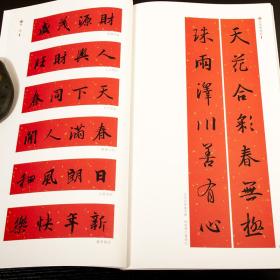 財源茂盛
人興財旺
天下同春
春滿人間
日朗風和
新年快樂
天花合彩春無極
珠雨澤川善有心